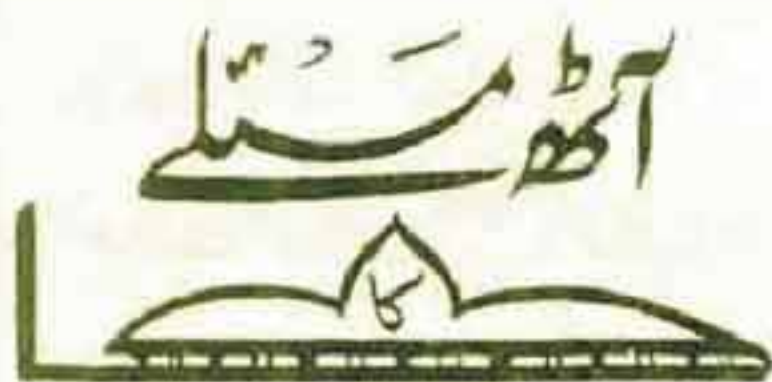 آٹھ مسئلے
کا